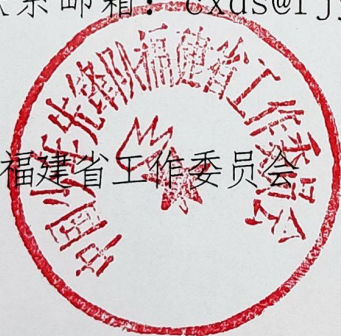 系邮箱：cxds@fjy
中国少年先锋队福建省工作委员会
福建省工作委员会